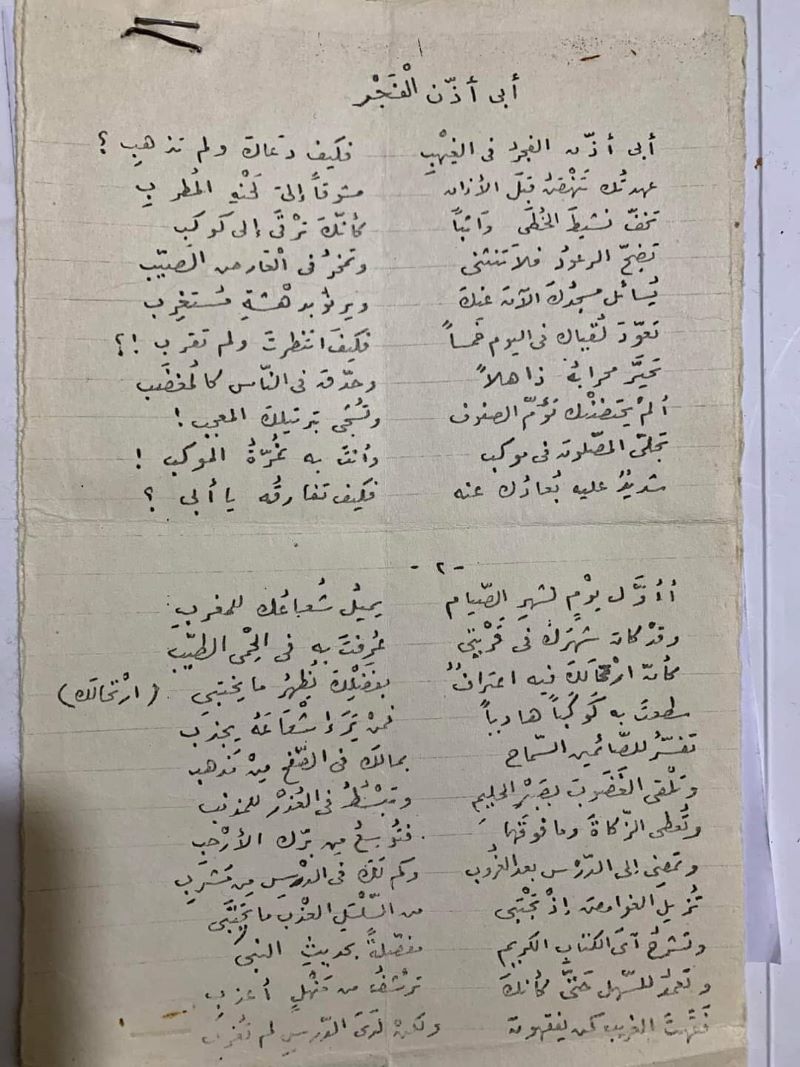 أبى أذّن الْفَجْر
أبى أذّن الفجرُ فى الغيْهبِ فكيف دَعاكَ ولم تذهبِ ؟
عهدتُك تَنْهَضُ قبْلَ الأذان مشوقاً إلى لَحْنهِ المُطربِ
تخفّ نشيطَ الخُطَى واثباً كأنّكَ تَرْقَى إلى كوكبِ
تضجّ الرعودُ فلا تنثنى وتمخرُ فى العارض الصيّبِ
يُسائل مسجدُك الآنَ عنكَ ويرنُو بدهْشةِ مُستغربِ
تعوّدَ لُقياك فى اليوم خمساً فكيفَ انتظرتَ ولم تقربِ !؟
تحيَّر محرابهُ ذاهلاً وحدّق فى النّاس كالمُغضَبِ
ألمْ يحتضنْك تؤمّ الصفوفَ وتُشجى بترتيلكَ المعجبِ !
تجلّى المصّلونَ فى موكب وأنتَ به غُرّةُ الموكبِ !
شديدٌ عليه بُعادُك عنه فكيف تفارقُه يا أبى ؟
- ٢ -
أأوَّل يوْمٍ لشهرِ الصّيام يميلُ شُعاعُك للمغربِ
وقدْ كان شهرَكَ فى قَرْيتى عُرفتَ به فى الحِمى الطيّبِ
كأنّ ارْتحالَكَ فيه اعترافٌ بفَضْلِكَ يُظهرُ ما يختبى (ارْتحالك)
سطعتَ به كَوْكباً هادياً فمنْ يَرَ إشْعَاعَهُ يجذبِ
تفسّرُ للصّائمين السّماح بمالكَ فى الصّفح مِنْ مَذهبِ
وتلْقى الغَضوبَ بصَبْرِ الحليمِ وتبْسُطُ فى العُذْر للمذنبِ
وتُعطى الزّكاةَ وما فوقَها فتُوسعُ من برّك الأرْحبِ
وتمضى إلى الدّرْسِ بعد الغُروب وكم لكَ فى الدرْسِ مِن مَشْربِ
تُزيل الغوامضَ إذْ تجْتَبى من السّلْسَلِ العذْب ما تجْتَبى
وتشرحُ آىَ الكتابِ الكريمِ مفصّلةً بحديثِ النبىّ
وتعمدُ للسّهل حَتّى كأنكَ ترْشفُ من مَنْهلٍ أعذبِ
فَقِهْتَ الغريب لمن يفقهونَ ولكنْ لَدَى الدّرسِ لم تُغربِ